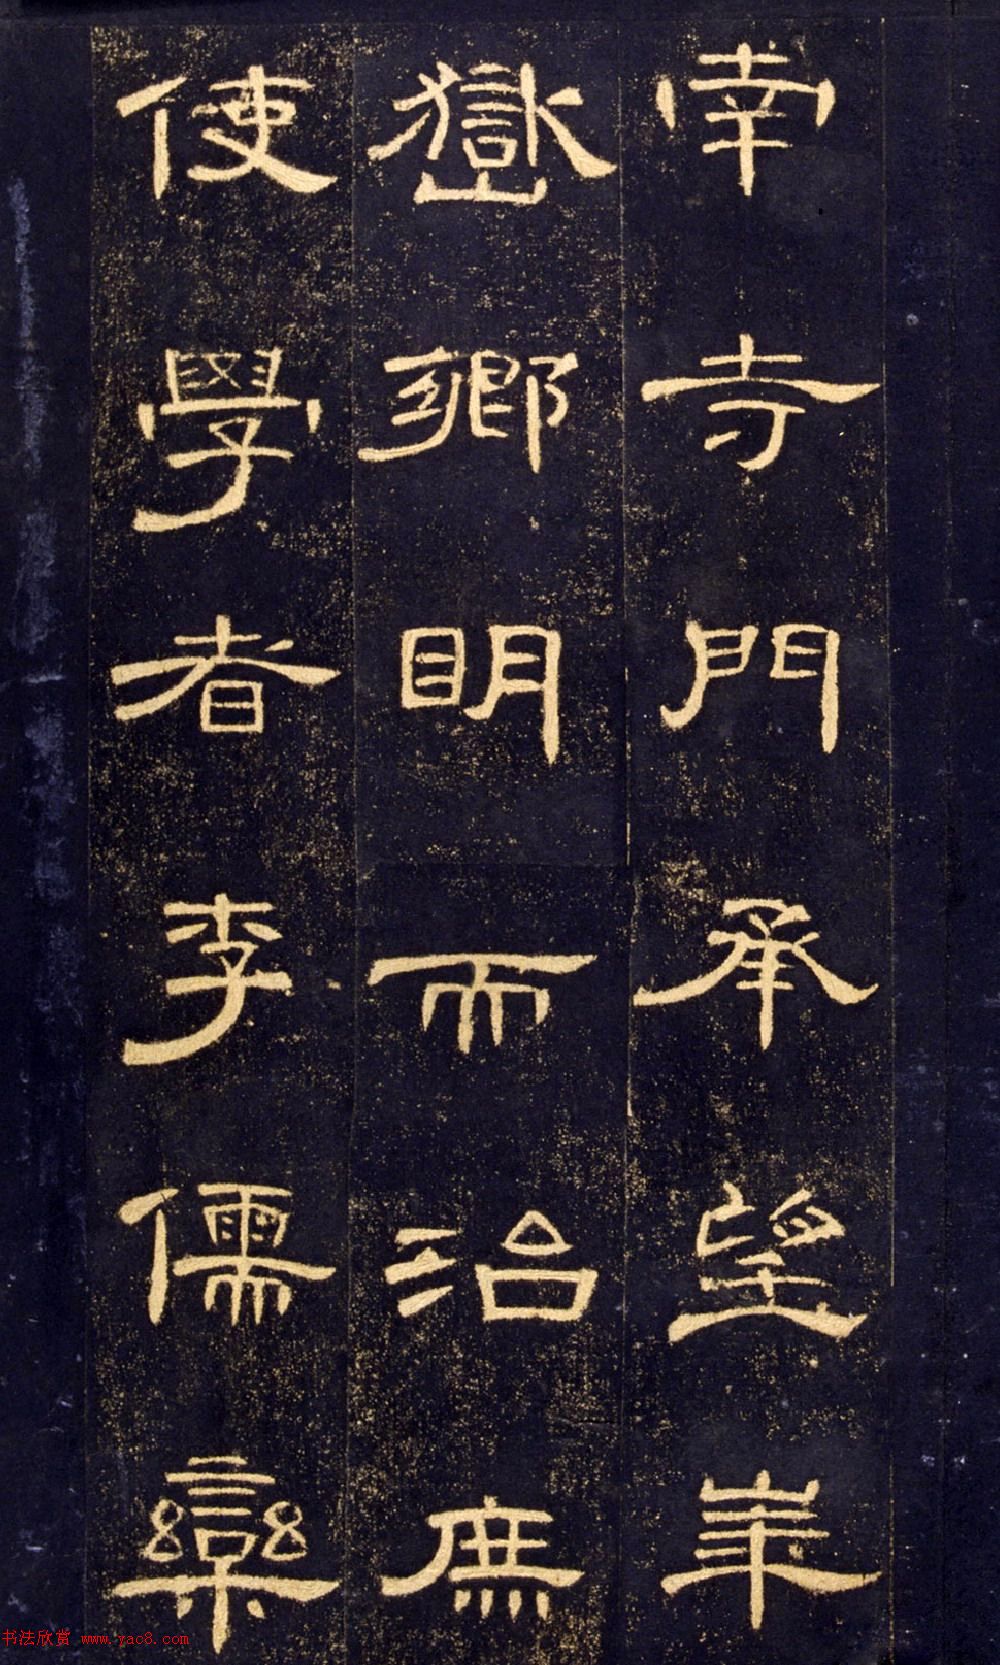 幸寺門承望崋
嶽鄉明而治庶
使學者李儒欒
书法欣赏 www.yac8.com